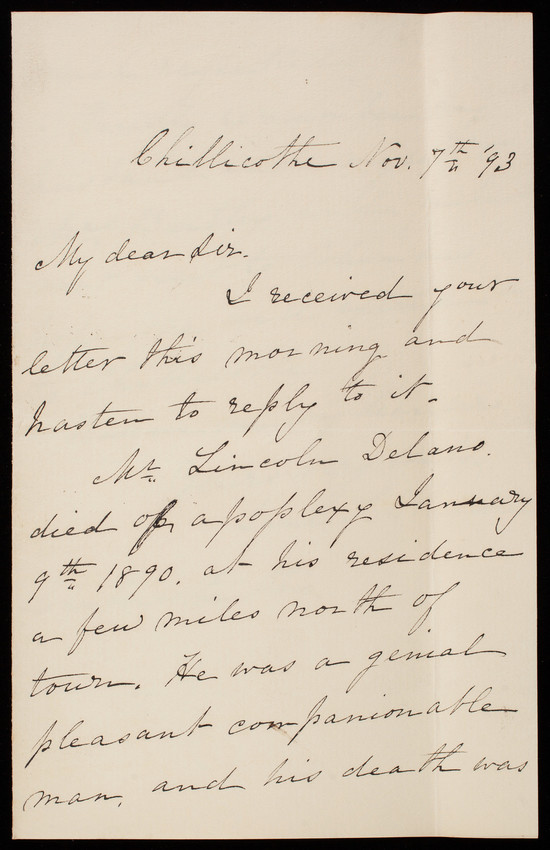 Chillicothe Nov. 7th '93
My dear Sir.
I received your
letter this morning and
hasten to reply to it.
Mr. Lincoln Delano.
died of apoplexy January
9th 1890. at his residence
a few miles north of
town. He was a genial
pleasant companionable
man, and his death was